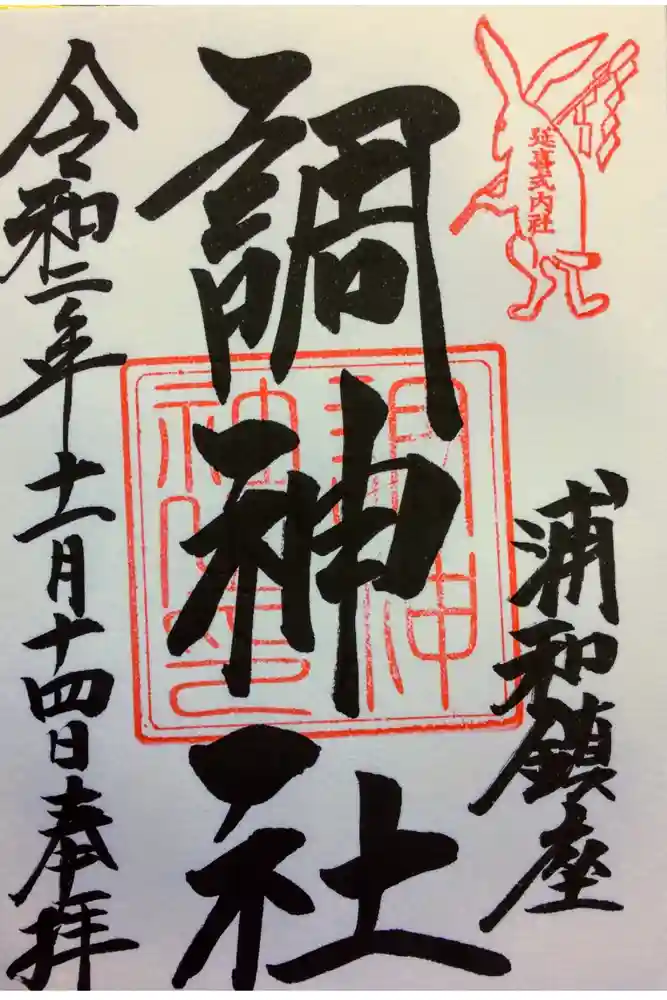 延喜式内社
浦和鎮座
調神社
調神社之印
令和二年十一月十四日奉拝